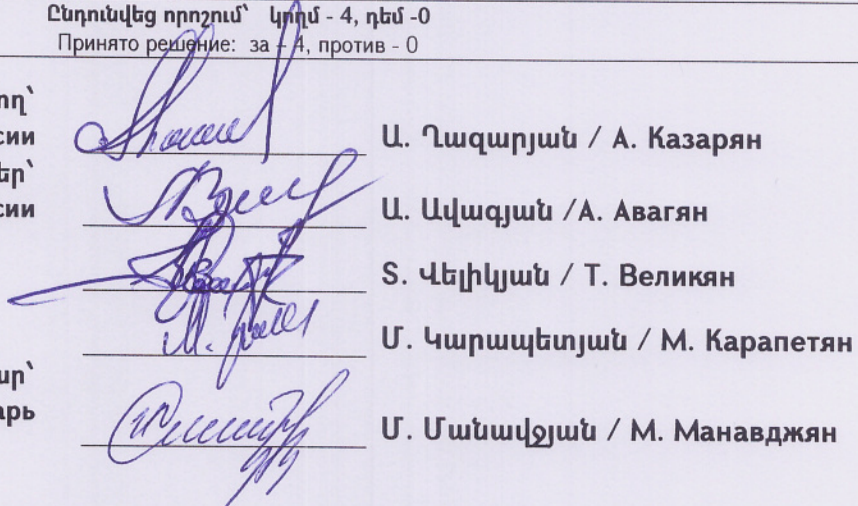 Ընդունվեց որոշում՝ կողմ - 4, դեմ -0
Принято решение: за - 4, против - 0
ող՝
сии
Ա. Ղազարյան / А. Казарян
եր՝
сии
Ա. Ավագյան /А. Авагян
Տ. Վելիկյան / Т. Великян
Մ. Կարապետյան / М. Карапетян
ար՝
арь
Մ. Մանավջյան / М. Манавджян